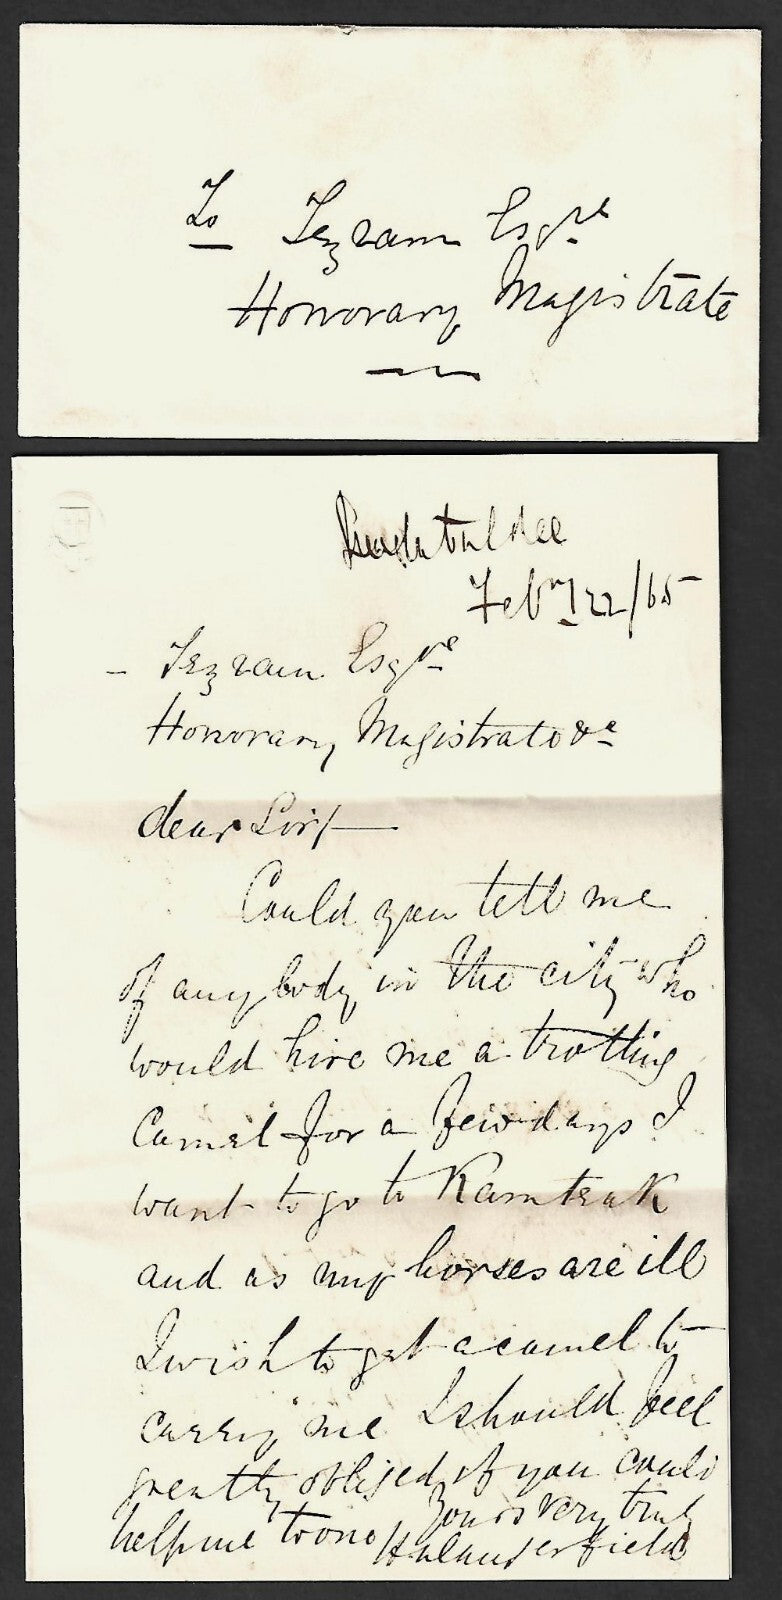 To Tezram Esqre
Honorary Magistrate
Febry 22/65
Tezram Esqre
Honorary Magistrate &c
dear Sir/
Could you tell me
of any body in the city who
would hire me a trotting
Camel for a few days I
want to go to Ramteak
and as my horses are ill
I wish to get a camel to
carry me I should feel
greatly obliged if you could
help me to one Yours very truly